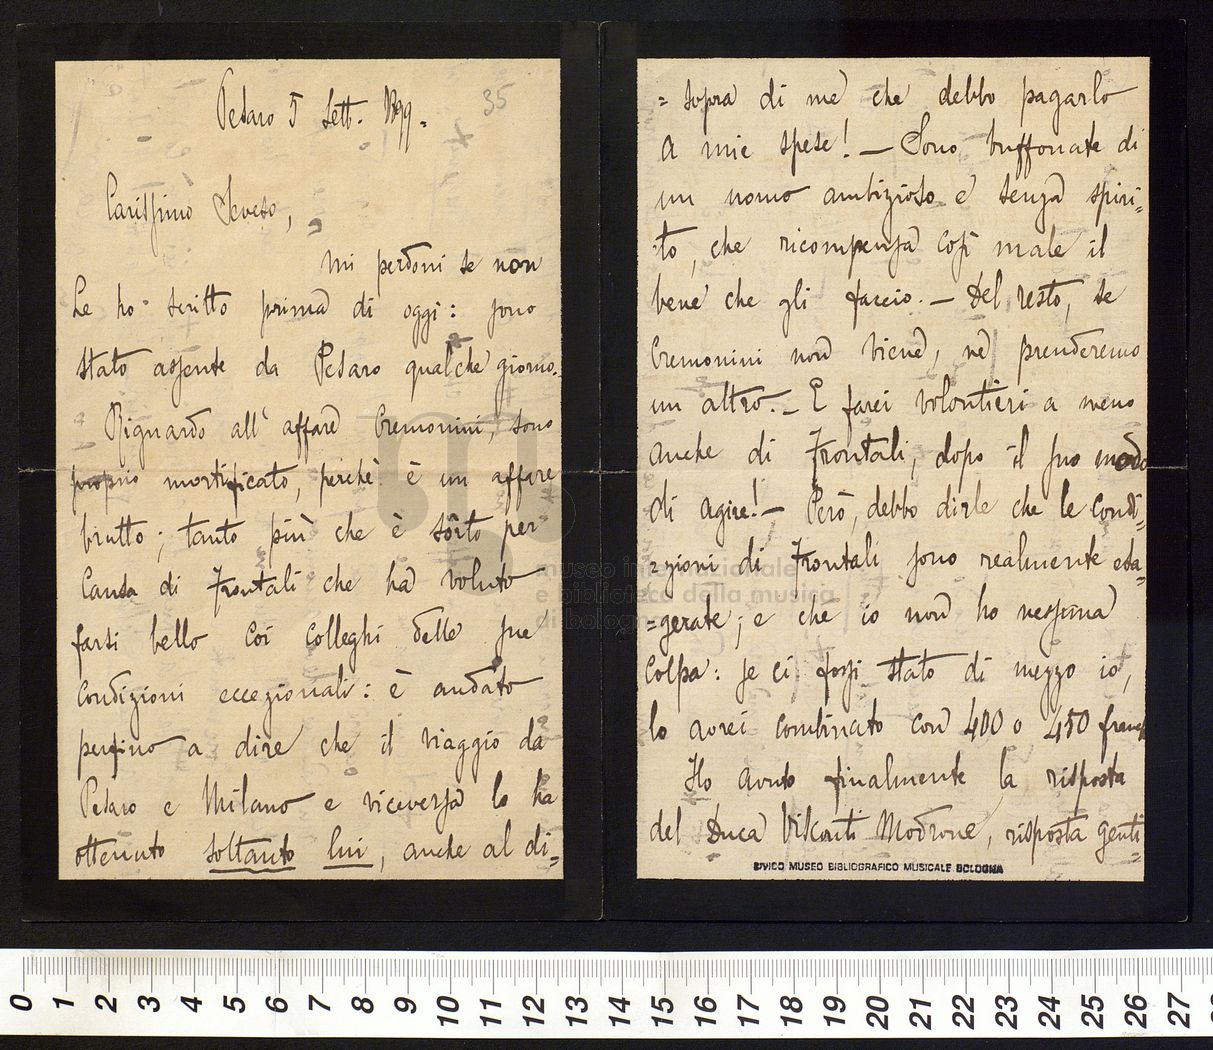 35
Pesaro 5 Sett. 1899=
Carissimo Seveso,
mi perdoni se non
Le ho scritto prima di oggi: sono
stato assente da Pesaro qualche giorno.
Riguardo all'affare Cremonini, sono
proprio mortificato, perchè è un affare
brutto; tanto più che è sorto per
causa di Frontali che ha voluto
farsi bello coi colleghi delle sue
condizioni eccezionali: è andato
perfino a dire che il viaggio da
Pesaro e Milano e viceversa lo ha
ottenuto soltanto lui, anche al di=
=sopra di me che debbo pagarlo
a mie spese! — Sono buffonate di
un uomo ambizioso e senza spiri=
to, che ricompensa così male il
bene che gli faccio. — Del resto, se
Cremonini non viene, ne prenderemo
un altro. — E farei volontieri a meno
anche di Frontali, dopo il suo modo
di agire! — Però, debbo dirle che le condi=
=zioni di Frontali sono realmente esa=
=gerate; e che io non ho nessuna
colpa: se ci fossi stato di mezzo io,
lo avrei combinato con 400 o 450 franchi
Ho avuto finalmente la risposta
del Duca Visconti Modrone, risposta genti=
CIVICO MUSEO BIBLIOGRAFICO MUSICALE BOLOGNA
museo internazionale
e biblioteca della musica
di bologna
0 1 2 3 4 5 6 7 8 9 10 11 12 13 14 15 16 17 18 19 20 21 22 23 24 25 26 27